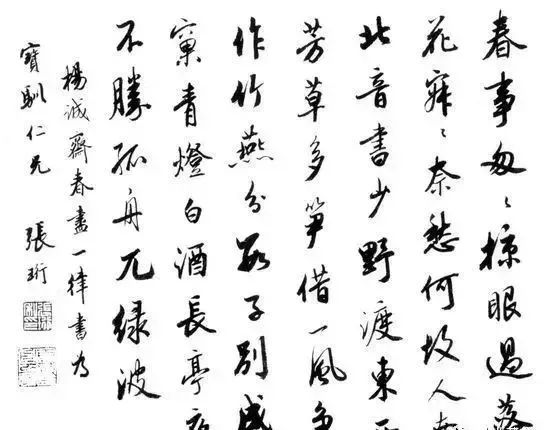 春事匆〻掠眼過落
花寂〻奈愁何故人南
北音書少野渡東西
芳草多笋借一風爭
作竹燕分數子別成
窠青燈白酒長亭夜
不勝孤舟兀綠波
楊誠齋春盡一律書為
寶馴仁兄 張珩